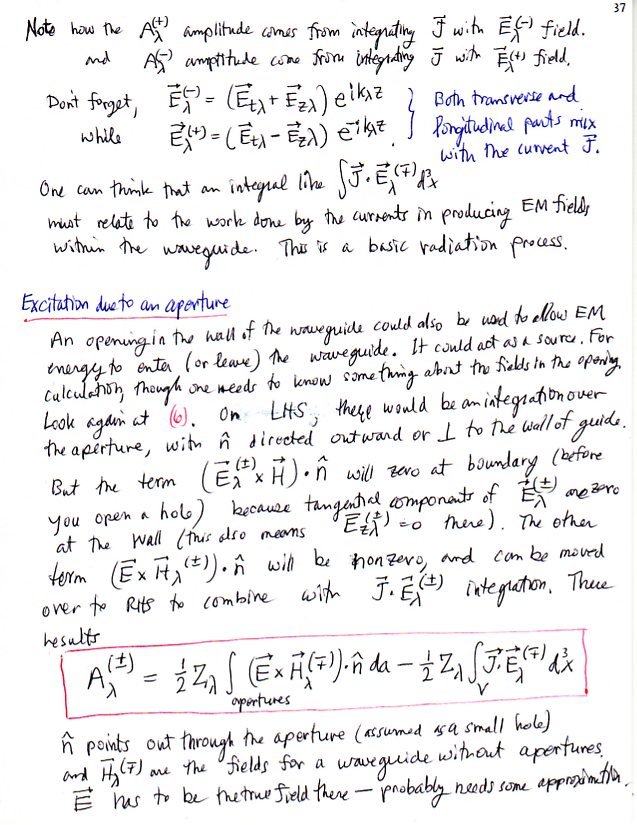 37
Note how the A_λ^(+) amplitude comes from integrating J⃗ with E⃗_λ^(-) field.
and A_λ^(-) amptltude come from integrating J⃗ with E⃗_λ^(+) field,
Don't forget, E⃗_λ^(-) = (E⃗_tλ + E⃗_zλ) e^{ik_λz}
while E⃗_λ^(+) = (E⃗_tλ - E⃗_zλ) e^{-ik_λz}
} Both transverse and
longitudinal parts mix
with the current J⃗.
One can think that an integral like ∫J⃗·E⃗_λ^(∓) d³x
must relate to the work done by the currents in producing EM fields
within the waveguide. This is a basic radiation process.
Excitation due to an aperture
An opening in the wall of the waveguide could also be used to allow EM
energy to enter (or leave) the waveguide. It could act as a source. For
calculation, though one needs to know something about the fields in the opening.
Look again at (6). On LHS, there would be an integration over
the aperture, with n̂ directed outward or ⊥ to the wall of guide.
But the term (E⃗_λ^(±) × H⃗)·n̂ will zero at boundary (before
you open a hole) because tangential components of E⃗_λ^(±) are zero
at the wall (this also means E⃗_zλ^(±) = 0 there). The other
term (E⃗ × H⃗_λ^(±))·n̂ will be nonzero, and can be moved
over to RHS to combine with J⃗·E⃗_λ^(±) integration. There
results
A_λ^(±) = ½ Z_λ ∫_apertures (E⃗ × H⃗_λ^(∓))·n̂ da − ½ Z_λ ∫_V J⃗·E⃗_λ^(∓) d³x
n̂ points out through the aperture (assumed as a small hole)
and H⃗_λ^(∓) are the fields for a waveguide without apertures.
E⃗ has to be the true field there — probably needs some approximation.